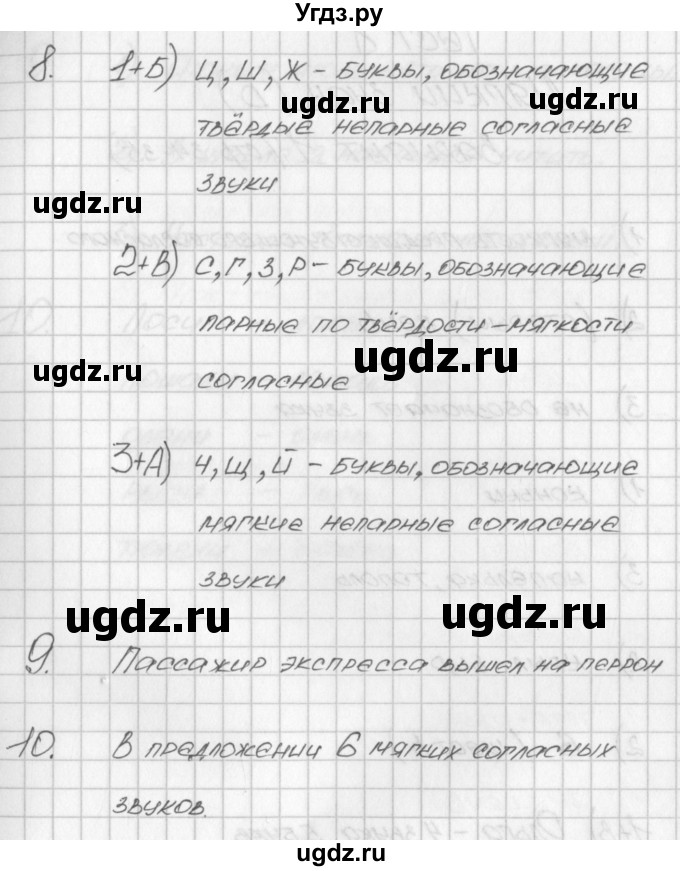 Угдз.ру
8. 1+Б) Ц, Ш, Ж – буквы, обозначающие
ugdz.ru ugdz.ru
твёрдые непарные согласные
звуки
ugdz.ru
2+В) С, Г, З, Р – буквы, обозначающие
парные по твёрдости – мягкости
ugdz.ru ugdz.ru
согласные
3+А) Ч, Щ, Й – буквы, обозначающие
мягкие непарные согласные
звуки
ugdz.ru ugdz.ru
9. Пассажир экспресса вышел на перрон
10. В предложении 6 мягких согласных
звуков.
ugdz.ru